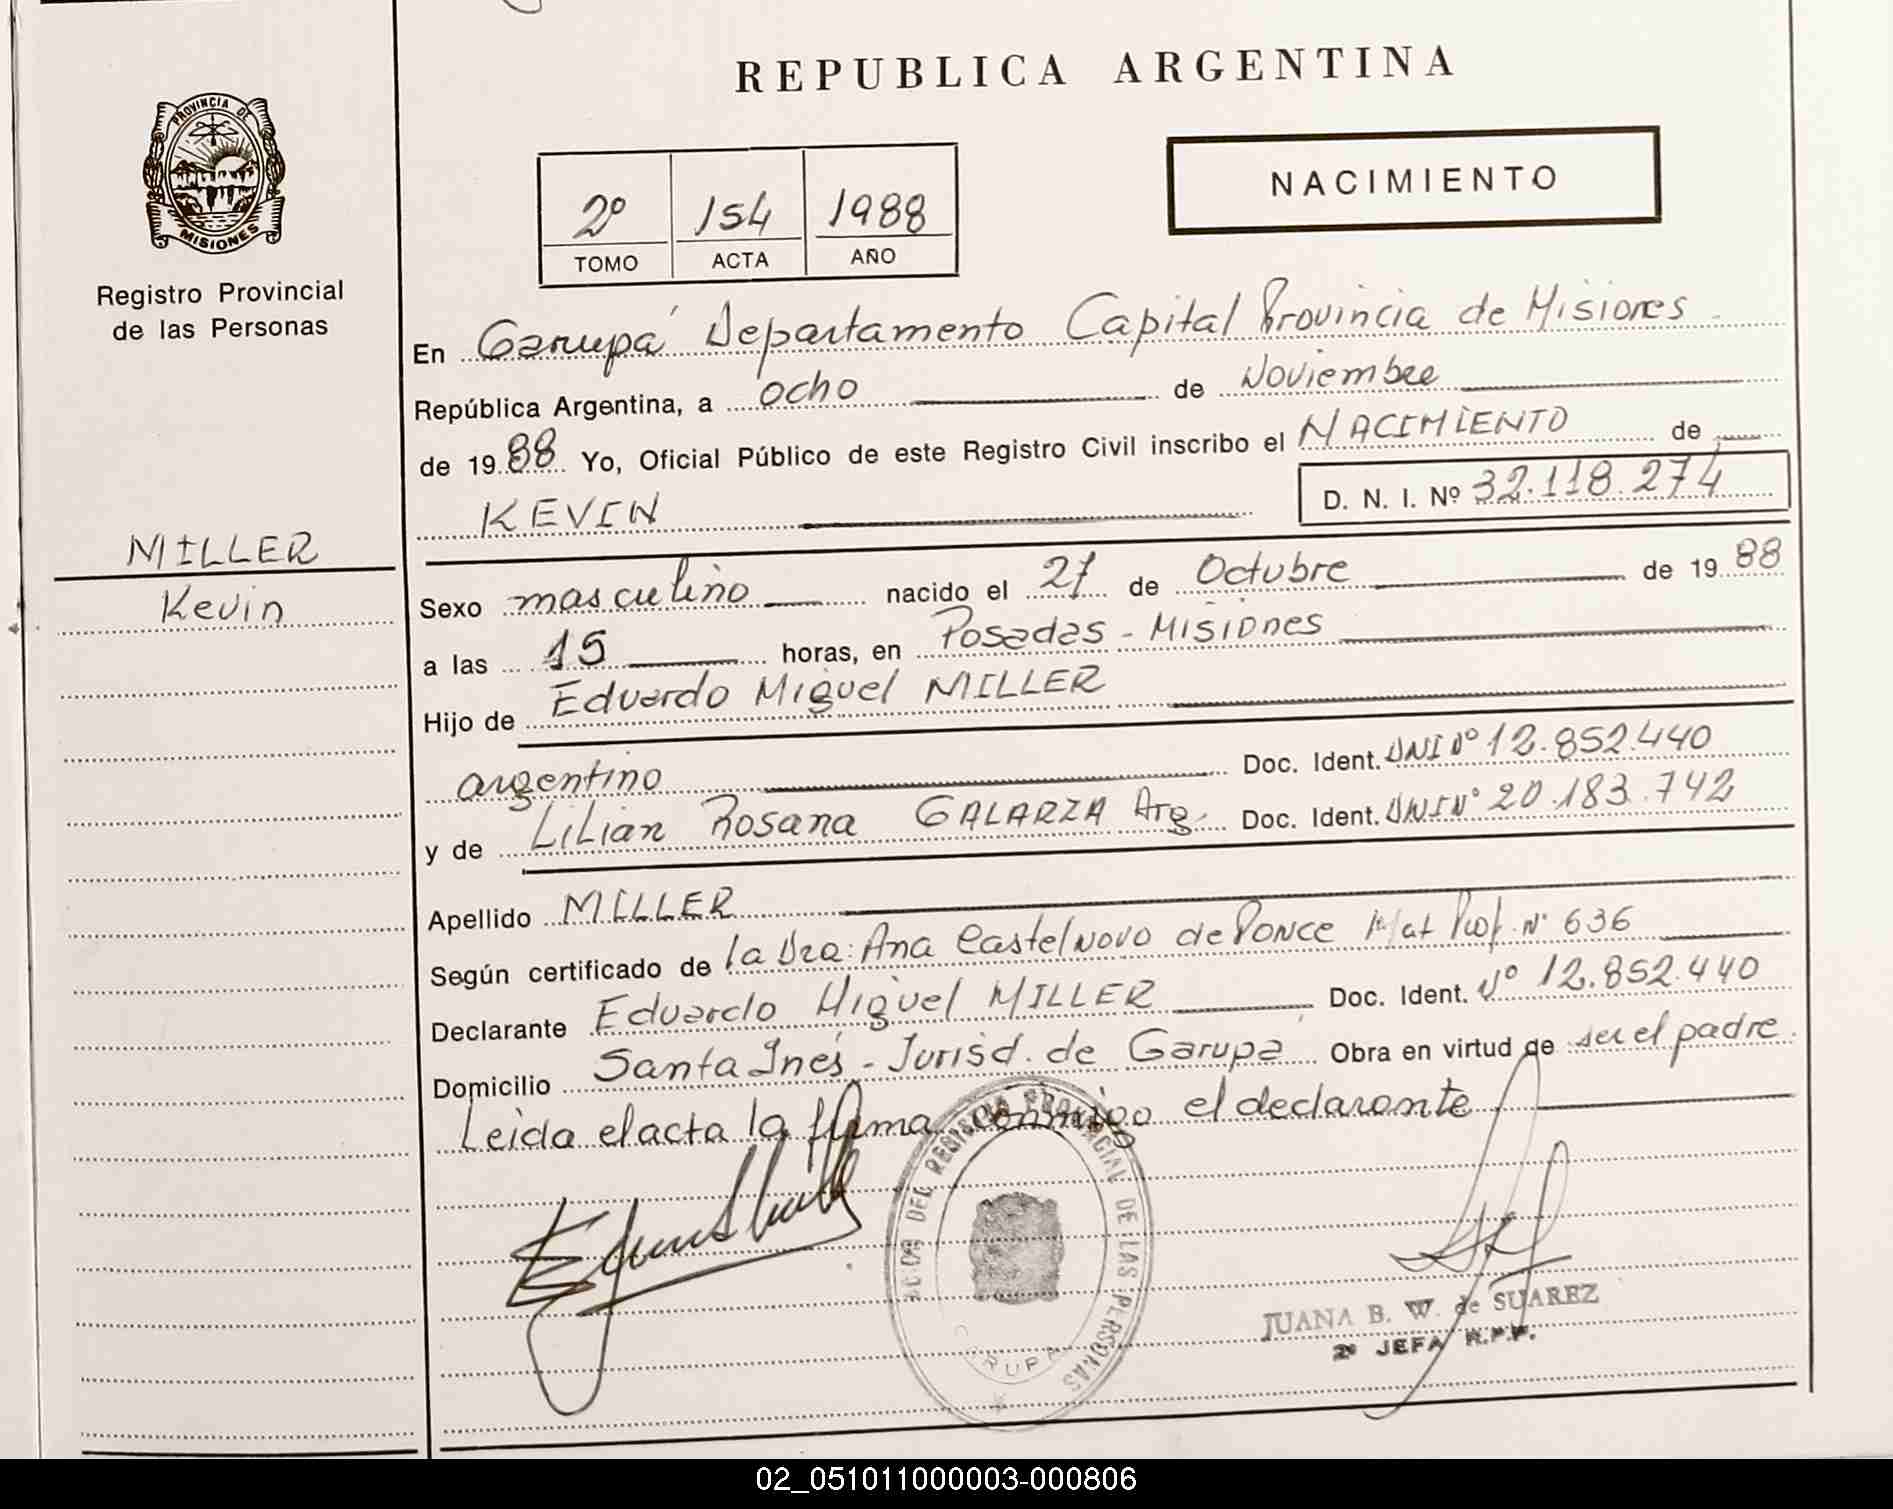 REPUBLICA ARGENTINA
PROVINCIA DE
MISIONES
Registro Provincial
de las Personas
NACIMIENTO
2º 154 1988
TOMO ACTA AÑO
En Garupá Departamento Capital Provincia de Misiones
República Argentina, a ocho de Noviembre
de 1988 Yo, Oficial Público de este Registro Civil inscribo el NACIMIENTO de
KEVIN D. N. I. Nº 32.118.274
MILLER
Kevin
Sexo masculino nacido el 27 de Octubre de 1988
a las 15 horas, en Posadas - Misiones
Hijo de Eduardo Miguel MILLER
argentino Doc. Ident. DNI Nº 12.852.440
y de Lilian Rosana GALARZA Arg. Doc. Ident. DNI Nº 20.183.742
Apellido MILLER
Según certificado de la Dra: Ana Castelnovo de Ponce Mat Prof. Nº 636
Declarante Eduardo Miguel MILLER Doc. Ident. Nº 12.852.440
Domicilio Santa Inés - Jurisd. de Garupá Obra en virtud de ser el padre.
Leida el acta la firma conmigo el declarante
DEL REGISTRO PROVINCIAL DE LAS PERSONAS
GARUPA
JUANA B. W. de SUAREZ
2ª JEFA R.P.P.
02_051011000003-000806